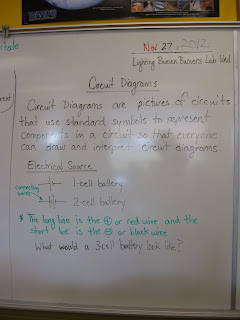 Nov 27, 2012
Lighting Bunsen Burners Lab Wed
Circuit Diagrams
Circuit Diagrams are pictures of circuits
that use standard symbols to represent
components in a circuit so that everyone
can draw and interpret circuit diagrams.
Electrical Source
connecting
wires
1-cell battery
2-cell battery
* The long line is the ⊕ or red wire and the
short line is the ⊖ or black wire
What would a 3-cell battery look like?